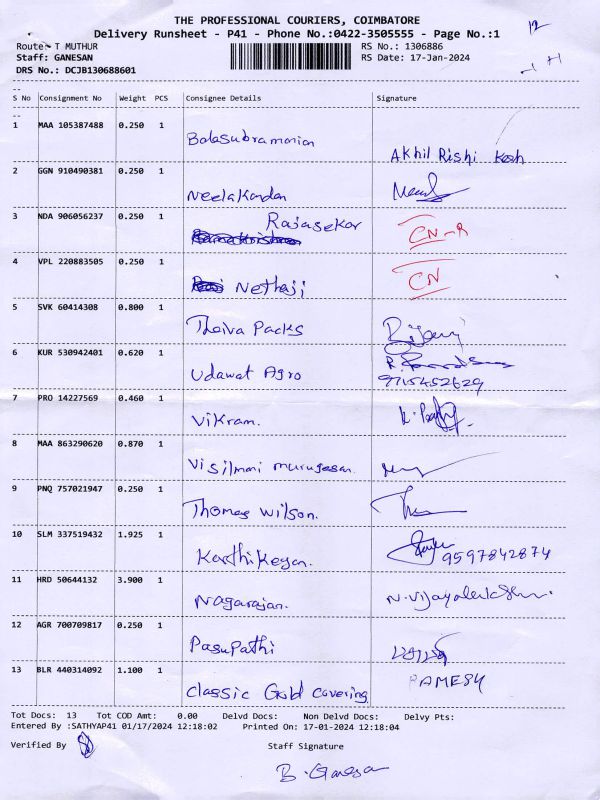 THE PROFESSIONAL COURIERS, COIMBATORE
Delivery Runsheet - P41 - Phone No.:0422-3505555 - Page No.:1
12
Route:- T MUTHUR
RS No.: 1306886
Staff: GANESAN
RS Date: 17-Jan-2024
DRS No.: DCJB130688601
S No Consignment No Weight PCS Consignee Details Signature
1 MAA 105387488 0.250 1 Balasubramanian Akhil Rishi
2 GGN 910490381 0.250 1 Neelakandan
3 NDA 906056237 0.250 1 Rajasekar CN-R
4 VPL 220883505 0.250 1 Nethaji CN
5 SVK 60414308 0.800 1 Theiva Packs
6 KUR 530942401 0.620 1 Udawat Agro 9715452629
7 PRO 14227569 0.460 1 Vikram.
8 MAA 863290620 0.870 1 murugesan
9 PNQ 757021947 0.250 1 Thomas Wilson.
10 SLM 337519432 1.925 1 Karthikeyan. 9597842874
11 HRD 50644132 3.900 1 Nagarajan. N.Vijayalakshmi
12 AGR 700709817 0.250 1 Pasupathi
13 BLR 440314092 1.100 1 Classic Gold Covering RAMESH
Tot Docs: 13 Tot COD Amt: 0.00 Delvd Docs: Non Delvd Docs: Delvy Pts:
Entered By :SATHYAP41 01/17/2024 12:18:02 Printed On: 17-01-2024 12:18:04
Verified By
Staff Signature
B. Ganesan